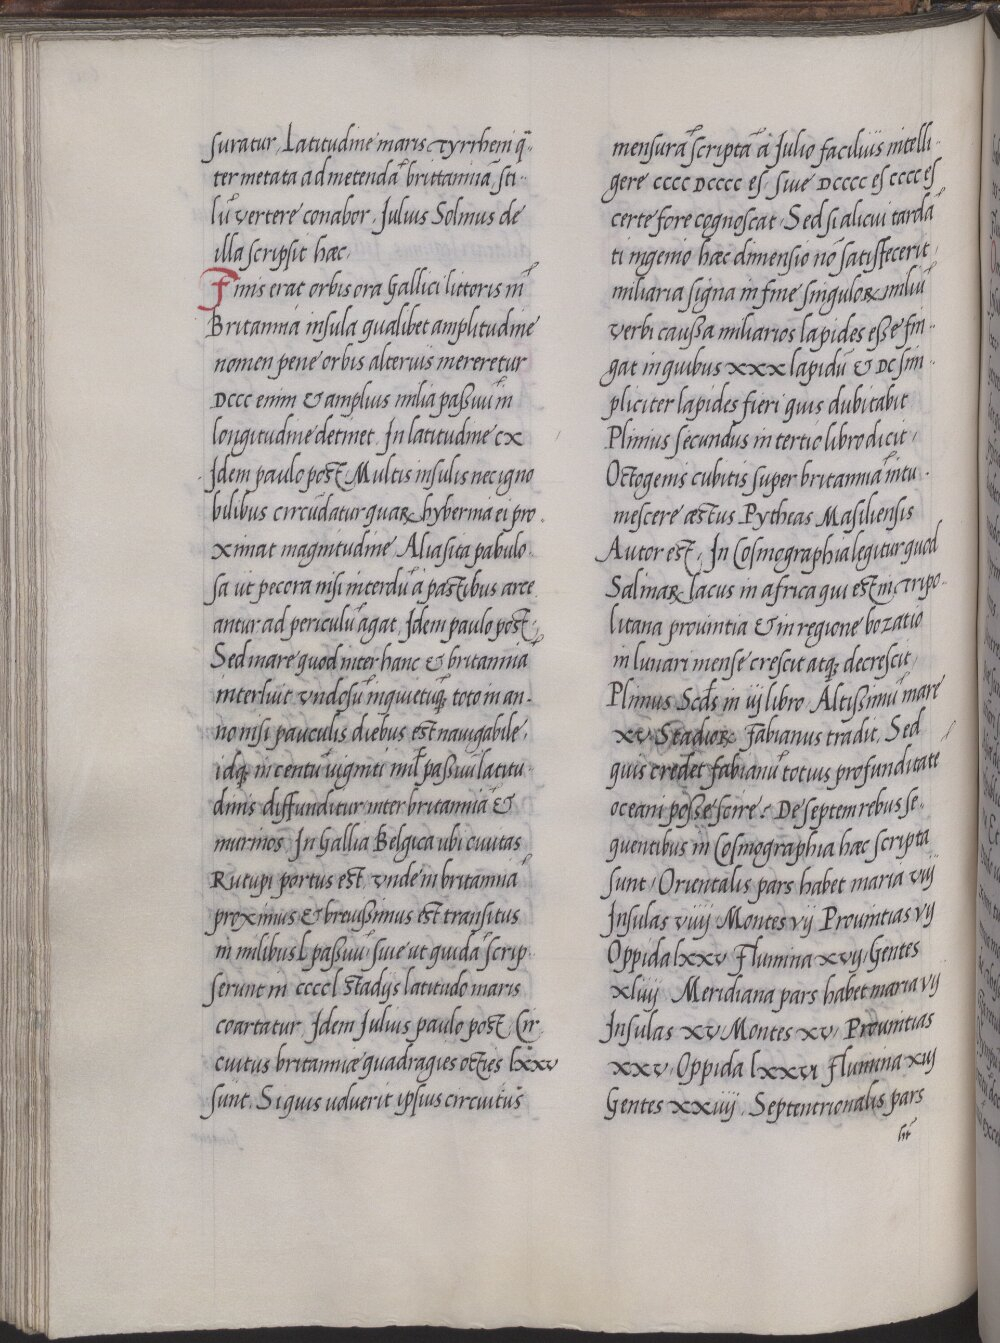 suratur, Latitudine maris Tyrrheni q̄-
ter metata ad metendā brittanniā, sti-
lū vertere conabor. Julius Solinus de
illa scripsit hæc,
Finis erat orbis ora Gallici littoris nī
Britannia insula qualibet amplitudine
nomen pene orbis alterius mereretur
DCCC enim & amplius milia passuū in
longitudine detinet. In latitudine cx
Idem paulo post, Multis insulis nec igno
bilibus circūdatur quaꝝ hybernia ei pro-
ximat magnitudine, Alias ita pabulo-
sa ut pecora nisi interdū a pastibus arce
antur ad periculū agat. Idem paulo post,
Sed mare quod inter hanc & britanniā
interluit undosū inquietuqꝫ toto in an-
no nisi pauculis diebus est navigabile,
idqꝫ in centū viginti mil̄ passuū latitu-
dinis diffunditur inter britanniā &
murinos. In Gallia Belgica ubi civitas
Rutupi portus est unde in britanniā
proximus & brevissimus est transitus
in milibus l passuū, sive ut quidā scrip
serunt in ccccl stadijs latitudo maris
coartatur. Idem Julius paulo post, Cir
cuitus britanniæ quadragies octies lxxv
sunt. Siquis udverit ipsius circuitūs
mensurā scriptā à Julio facilius intelli-
gere cccc DCCCC es, sive DCCCC es cccc es
certe fore cognoscat, Sed si alicui tardā
ti ingenio hæc dimensio nō satisfecerit,
miliaria signa in fine singuloꝝ miliū
verbi caussa miliarios lapides esse fin-
gat in quibus xxx lapidū & DC sim-
pliciter lapides fieri quis dubitabit
Plinius secundus in tertio libro dicit,
Octogenis cubitis super britanniā intu-
mescere æstus Pytheas Masiliensis
Autor est, In Cosmographia legitur quod
Salinaꝝ lacus in africa qui est in Tripo-
litana provintia & in regione bozatio
in lunari mense crescit atqꝫ decrescit,
Plinius Scd̄s in iij libro, Altissimū mare
xv Stadioꝝ Fabianus tradit, Sed
quis credet fabianū totius profunditatē
oceani posse scire? De septem rebus se-
quentibus in Cosmographia hæc scripta
sunt, Orientalis pars habet maria viij
Insulas viiij Montes vij Provintias vij
Oppida lxxv Flumina xvij, Gentes
xliiij Meridiana pars habet maria vij
Insulas xv, Montes xv, Provintias
xxv, Oppida lxxvi Flumina xvij
Gentes xxiiij, Septentrionalis pars
ht̄